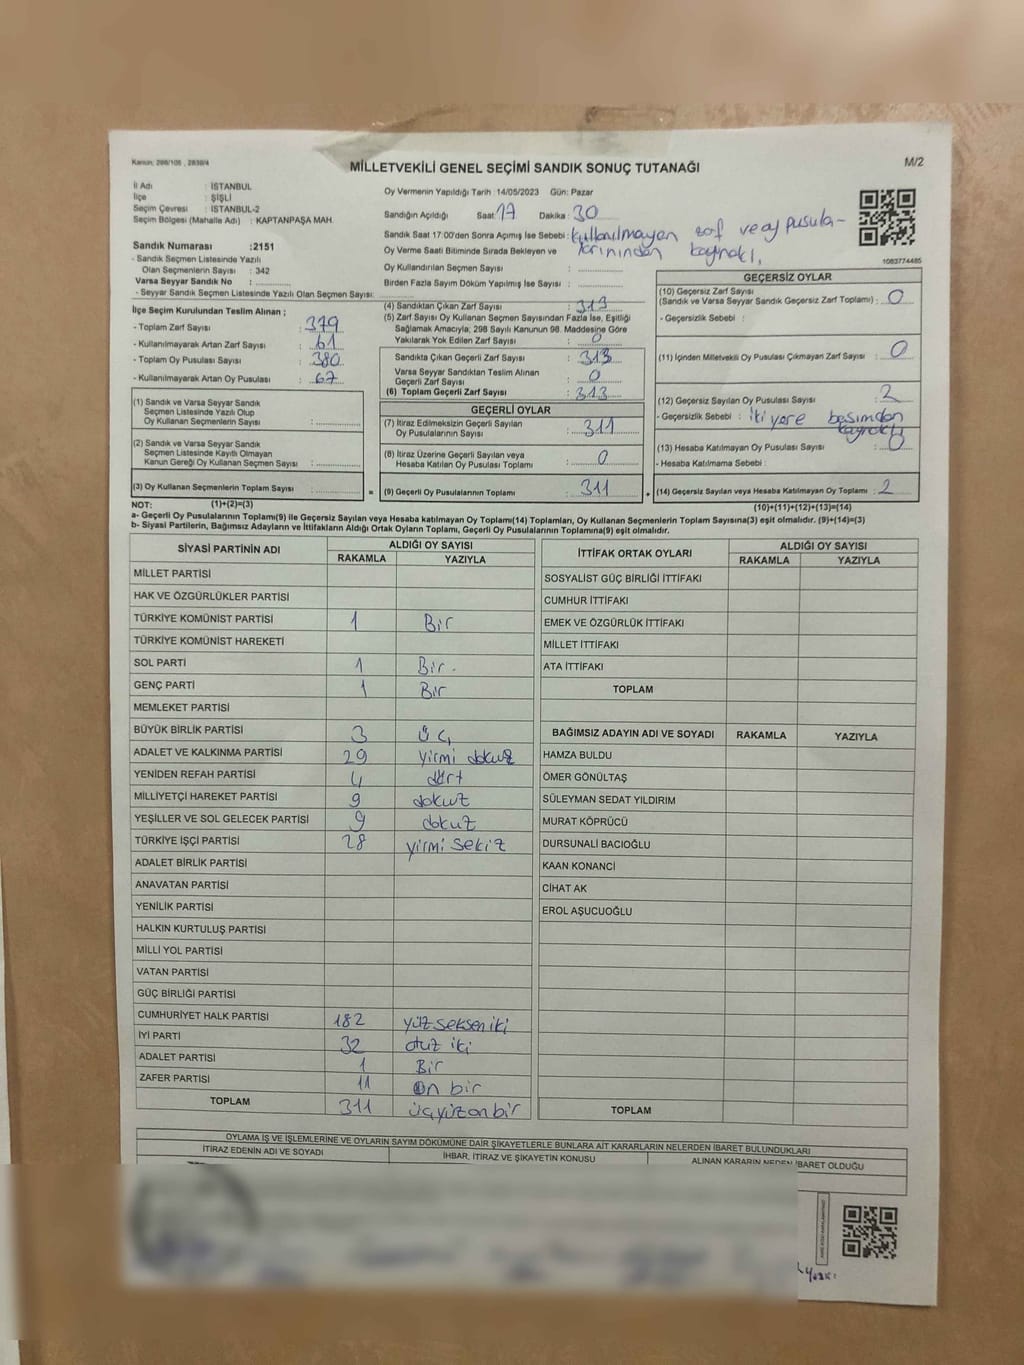 Kanun: 298/105 , 2839/4
MİLLETVEKİLİ GENEL SEÇİMİ SANDIK SONUÇ TUTANAĞI
M/2
İl Adı : İSTANBUL
İlçe : ŞİŞLİ
Seçim Çevresi : İSTANBUL-2
Seçim Bölgesi (Mahalle Adı) : KAPTANPAŞA MAH.
Sandık Numarası :2151
- Sandık Seçmen Listesinde Yazılı
Olan Seçmenlerin Sayısı : 342
Varsa Seyyar Sandık No :
- Seyyar Sandık Seçmen Listesinde Yazılı Olan Seçmen Sayısı:
Oy Vermenin Yapıldığı Tarih : 14/05/2023 Gün: Pazar
Sandığın Açıldığı Saat 17 Dakika : 30
Sandık Saat 17:00'den Sonra Açımış İse Sebebi : kullanılmayan zarf ve oy pusula-
Oy Verme Saati Bitiminde Sırada Bekleyen ve larınından kaynaklı.
Oy Kullandırılan Seçmen Sayısı :
Birden Fazla Sayım Döküm Yapılmış İse Sayısı :
1083774485
İlçe Seçim Kurulundan Teslim Alınan ;
- Toplam Zarf Sayısı : 379
- Kullanılmayarak Artan Zarf Sayısı : 61
- Toplam Oy Pusulası Sayısı : 380
- Kullanılmayarak Artan Oy Pusulası : 67
(1) Sandık ve Varsa Seyyar Sandık
Seçmen Listesinde Yazılı Olup
Oy Kullanan Seçmenlerin Sayısı :
(2) Sandık ve Varsa Seyyar Sandık
Seçmen Listesinde Kayıtlı Olmayan
Kanun Gereği Oy Kullanan Seçmen Sayısı :
(3) Oy Kullanan Seçmenlerin Toplam Sayısı :
(4) Sandıktan Çıkan Zarf Sayısı : 313
(5) Zarf Sayısı Oy Kullanan Seçmen Sayısından Fazla İse, Eşitliği
Sağlamak Amacıyla; 298 Sayılı Kanunun 98. Maddesine Göre
Yakılarak Yok Edilen Zarf Sayısı : 0
Sandıkta Çıkan Geçerli Zarf Sayısı : 313
Varsa Seyyar Sandıktan Teslim Alınan
Geçerli Zarf Sayısı : 0
(6) Toplam Geçerli Zarf Sayısı : 313
GEÇERLİ OYLAR
(7) İtiraz Edilmeksizin Geçerli Sayılan
Oy Pusulalarının Sayısı : 311
(8) İtiraz Üzerine Geçerli Sayılan veya
Hesaba Katılan Oy Pusulası Toplamı : 0
= (9) Geçerli Oy Pusulalarının Toplamı : 311
GEÇERSİZ OYLAR
(10) Geçersiz Zarf Sayısı
(Sandık ve Varsa Seyyar Sandık Geçersiz Zarf Toplamı) : 0
- Geçersizlik Sebebi :
(11) İçinden Milletvekili Oy Pusulası Çıkmayan Zarf Sayısı : 0
(12) Geçersiz Sayılan Oy Pusulası Sayısı : 2
- Geçersizlik Sebebi : iki yere basımdan
kaynaklı
(13) Hesaba Katılmayan Oy Pusulası Sayısı : 0
- Hesaba Katılmama Sebebi :
+ (14) Geçersiz Sayılan veya Hesaba Katılmayan Oy Toplamı : 2
NOT: (1)+(2)=(3)
(10)+(11)+(12)+(13)=(14)
a- Geçerli Oy Pusulalarının Toplamı(9) ile Geçersiz Sayılan veya Hesaba katılmayan Oy Toplamı(14) Toplamları, Oy Kullanan Seçmenlerin Toplam Sayısına(3) eşit olmalıdır. (9)+(14)=(3)
b- Siyasi Partilerin, Bağımsız Adayların ve İttifakların Aldığı Ortak Oyların Toplamı, Geçerli Oy Pusulalarının Toplamına(9) eşit olmalıdır.
SİYASİ PARTİNİN ADI ALDIĞI OY SAYISI
RAKAMLA YAZIYLA
MİLLET PARTİSİ
HAK VE ÖZGÜRLÜKLER PARTİSİ
TÜRKİYE KOMÜNİST PARTİSİ 1 Bir
TÜRKİYE KOMÜNİST HAREKETİ
SOL PARTİ 1 Bir.
GENÇ PARTİ 1 Bir
MEMLEKET PARTİSİ
BÜYÜK BİRLİK PARTİSİ 3 üç
ADALET VE KALKINMA PARTİSİ 29 yirmi dokuz
YENİDEN REFAH PARTİSİ 4 dört
MİLLİYETÇİ HAREKET PARTİSİ 9 dokuz
YEŞİLLER VE SOL GELECEK PARTİSİ 9 dokuz
TÜRKİYE İŞÇİ PARTİSİ 28 yirmi sekiz
ADALET BİRLİK PARTİSİ
ANAVATAN PARTİSİ
YENİLİK PARTİSİ
HALKIN KURTULUŞ PARTİSİ
MİLLİ YOL PARTİSİ
VATAN PARTİSİ
GÜÇ BİRLİĞİ PARTİSİ
CUMHURİYET HALK PARTİSİ 182 yüz seksen iki
İYİ PARTİ 32 otuz iki
ADALET PARTİSİ 1 Bir
ZAFER PARTİSİ 11 on bir
TOPLAM 311 üçyüz on bir
İTTİFAK ORTAK OYLARI ALDIĞI OY SAYISI
RAKAMLA YAZIYLA
SOSYALİST GÜÇ BİRLİĞİ İTTİFAKI
CUMHUR İTTİFAKI
EMEK VE ÖZGÜRLÜK İTTİFAKI
MİLLET İTTİFAKI
ATA İTTİFAKI
TOPLAM
BAĞIMSIZ ADAYIN ADI VE SOYADI RAKAMLA YAZIYLA
HAMZA BULDU
ÖMER GÖNÜLTAŞ
SÜLEYMAN SEDAT YILDIRIM
MURAT KÖPRÜCÜ
DURSUNALİ BACIOĞLU
KAAN KONANCİ
CİHAT AK
EROL AŞUCUOĞLU
TOPLAM
OYLAMA İŞ VE İŞLEMLERİNE VE OYLARIN SAYIM DÖKÜMÜNE DAİR ŞİKAYETLERLE BUNLARA AİT KARARLARIN NELERDEN İBARET BULUNDUKLARI
İTİRAZ EDENİN ADI VE SOYADI İHBAR, İTİRAZ VE ŞİKAYETİN KONUSU ALINAN KARARIN NEDEN İBARET OLDUĞU